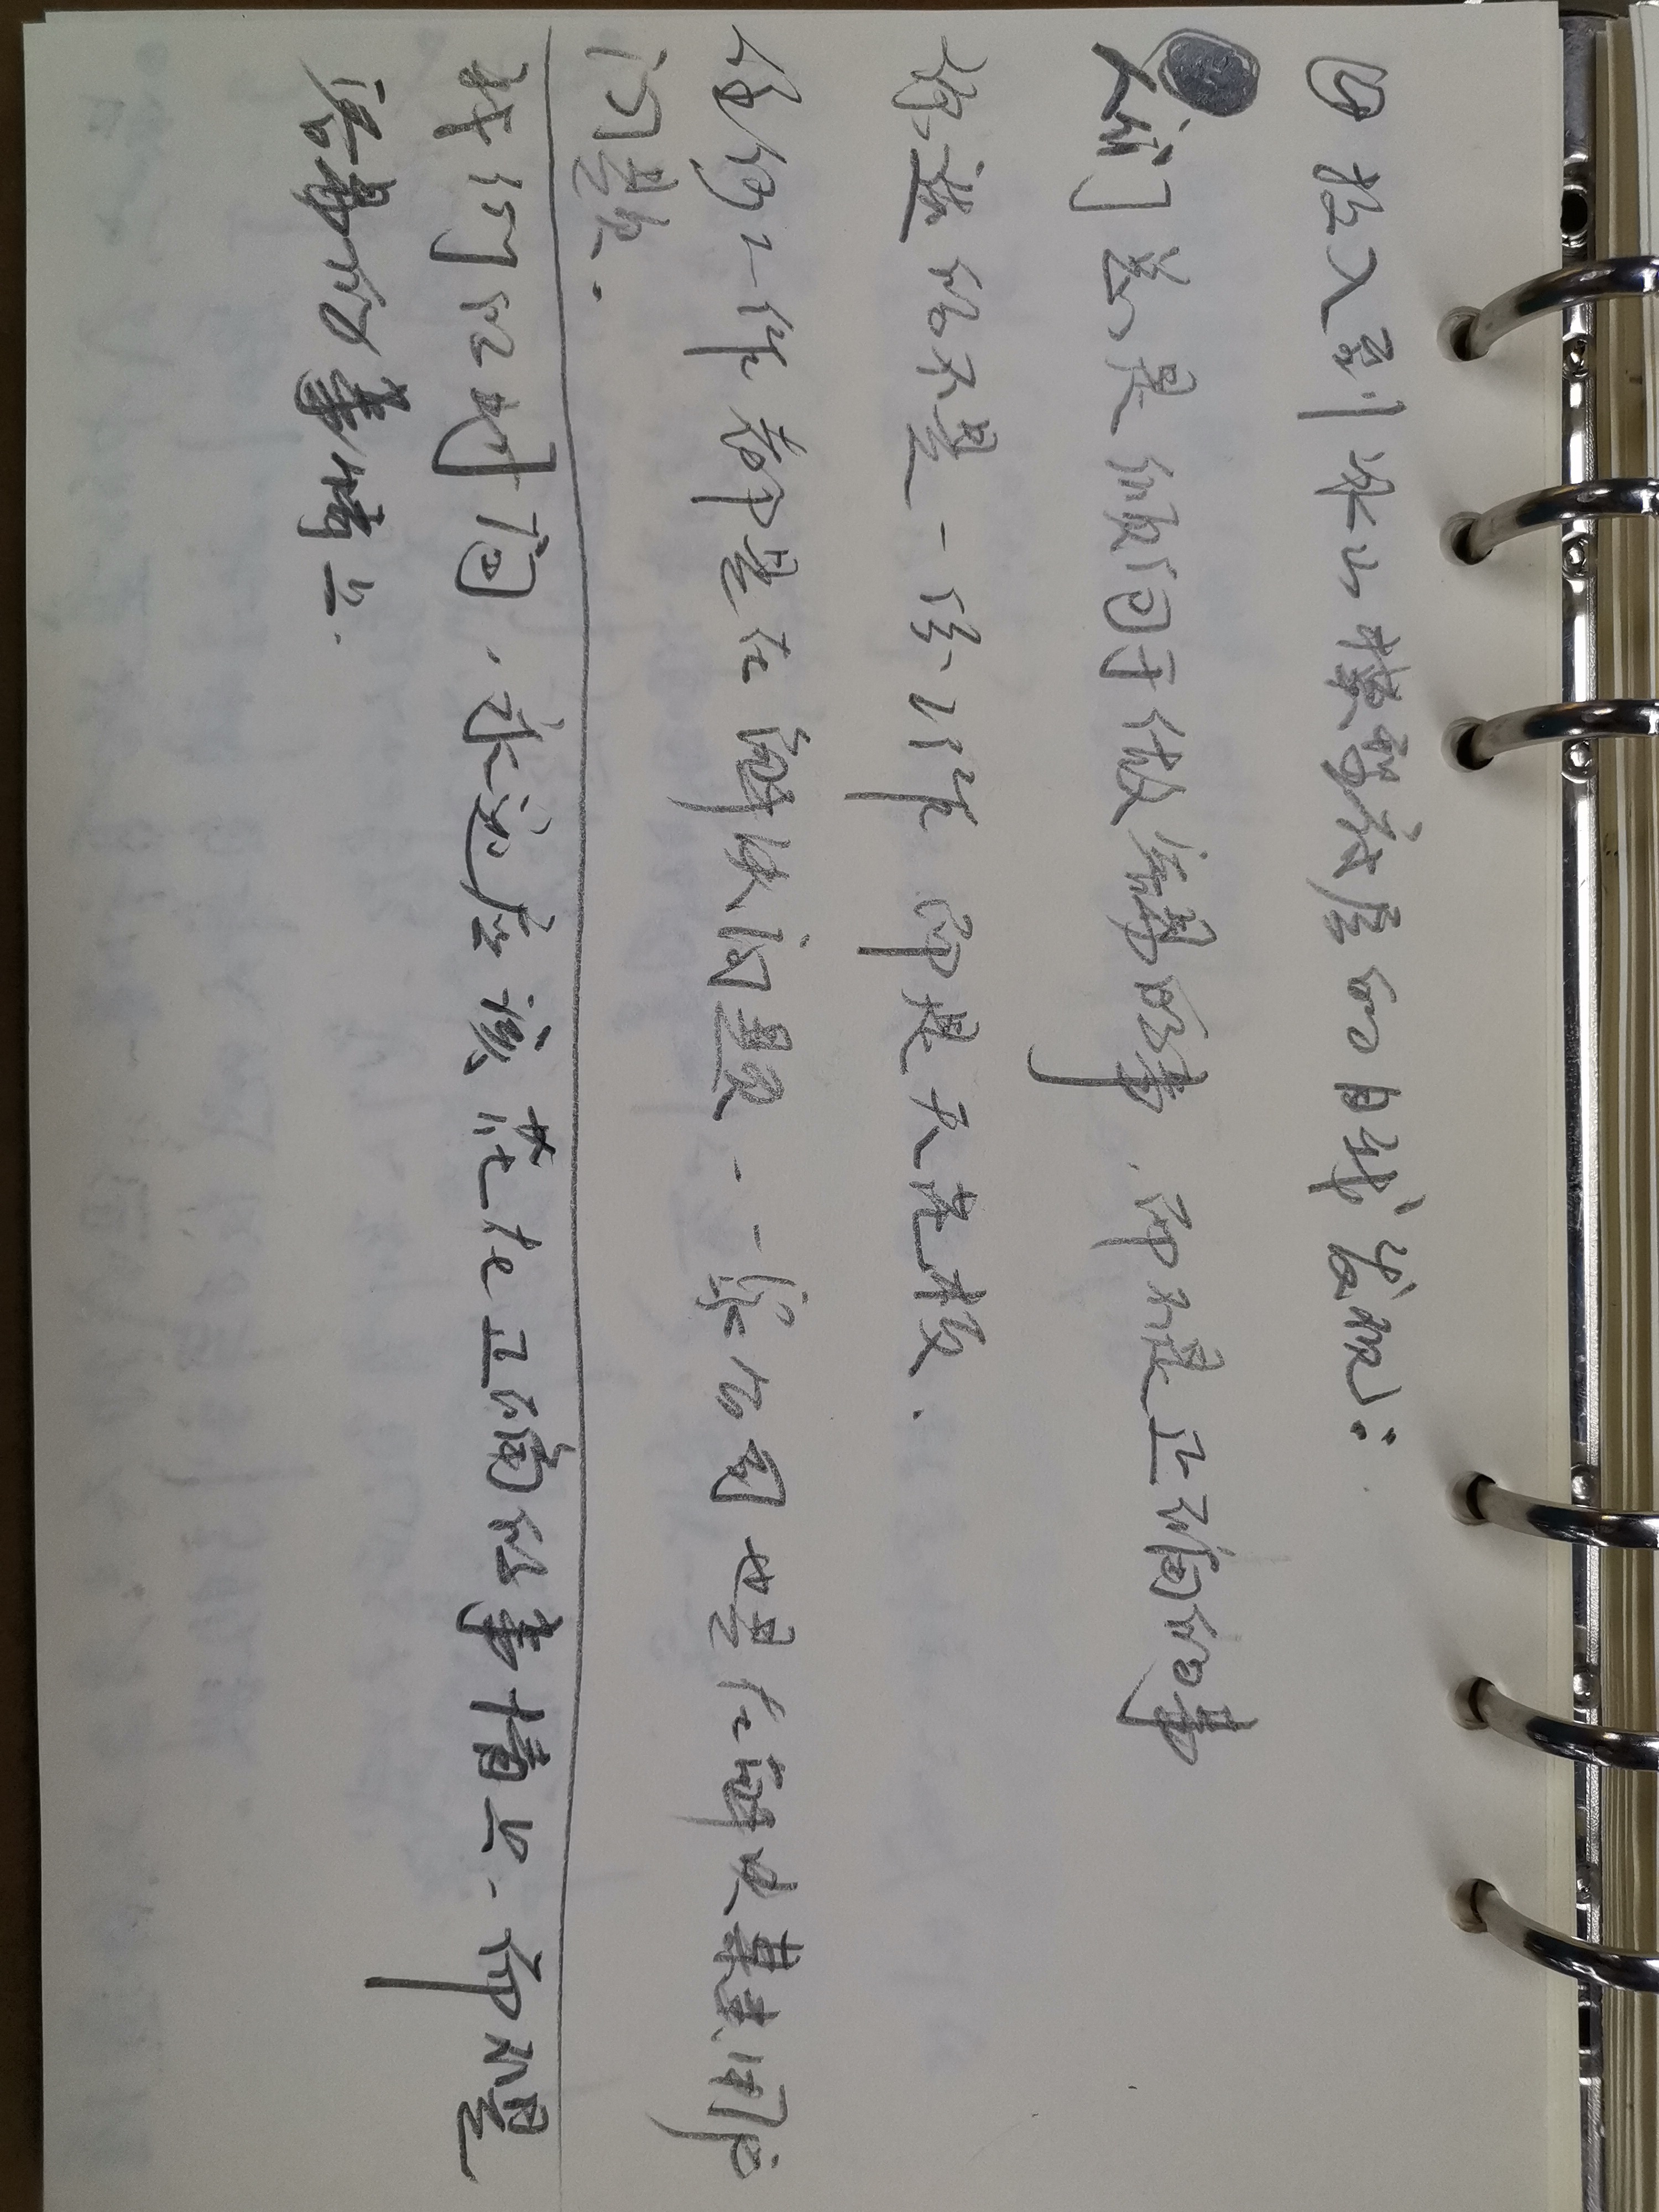 ④ 投入到冰山模型底层的自我发现:
人们总是倾向于做容易的事,而不是正确的事
你选的不是一份工作 而是天花板.
任何工作都是在解决问题.一家公司也是在解决某类用户
问题.
我们的时间,永远应该花在正确的事情上.而不是
容易的事情上.